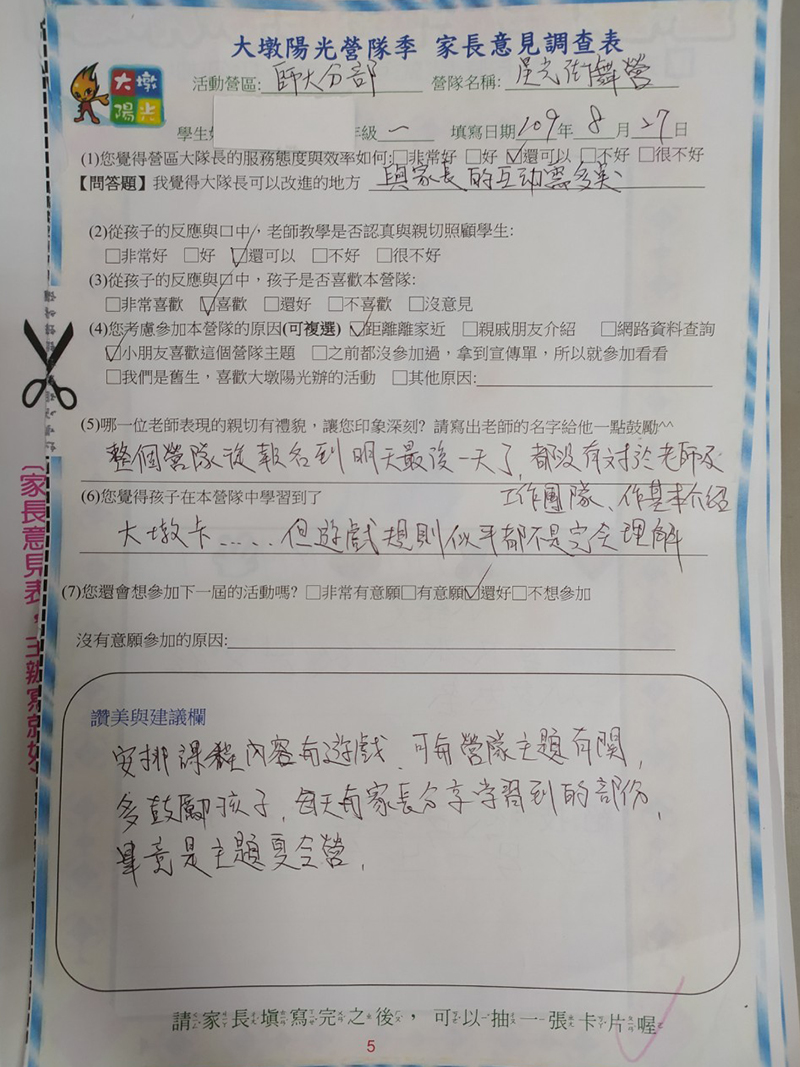 大墩陽光營隊季 家長意見調查表
大墩
陽光
活動營區: 師大分部 營隊名稱: 星光街舞營
學生 年級 一 填寫日期 109年 8月 27日
(1)您覺得營區大隊長的服務態度與效率如何:□非常好 □好 ☑還可以 □不好 □很不好
【問答題】我覺得大隊長可以改進的地方 與家長的互動需多些
(2)從孩子的反應與口中，老師教學是否認真與親切照顧學生:
□非常好 □好 ☑還可以 □不好 □很不好
(3)從孩子的反應與口中，孩子是否喜歡本營隊:
□非常喜歡 ☑喜歡 □還好 □不喜歡 □沒意見
(4)您考慮參加本營隊的原因(可複選) ☑距離離家近 □親戚朋友介紹 □網路資料查詢
☑小朋友喜歡這個營隊主題 □之前都沒參加過，拿到宣傳單，所以就參加看看
□我們是舊生，喜歡大墩陽光辦的活動 □其他原因:
(5)哪一位老師表現的親切有禮貌，讓您印象深刻? 請寫出老師的名字給他一點鼓勵^^
整個營隊從報名到明天最後一天了，都沒有對於老師及
工作團隊、作基本介紹
(6)您覺得孩子在本營隊中學習到了
大墩卡.....但遊戲規則似乎都不是完全理解
(7)您還會想參加下一屆的活動嗎? □非常有意願□有意願☑還好□不想參加
沒有意願參加的原因:
讚美與建議欄
安排課程內容有遊戲、可與營隊主題有關，
多鼓勵孩子，每天有家長分享學習到的部份，
畢竟是主題夏令營，
請家長填寫完之後，可以抽一張卡片喔
5
〔家長意見表，